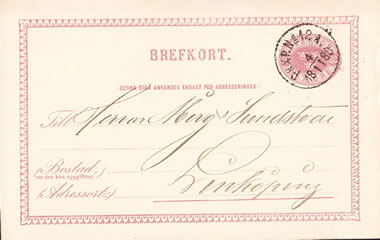 BREFKORT.
(DENNA SIDA ANVÄNDES ENDAST FÖR ADRESSERINGEN.)
Till Herrar
(Bostad,
om den kan uppgifvas)
(Adressort:)
Linköping